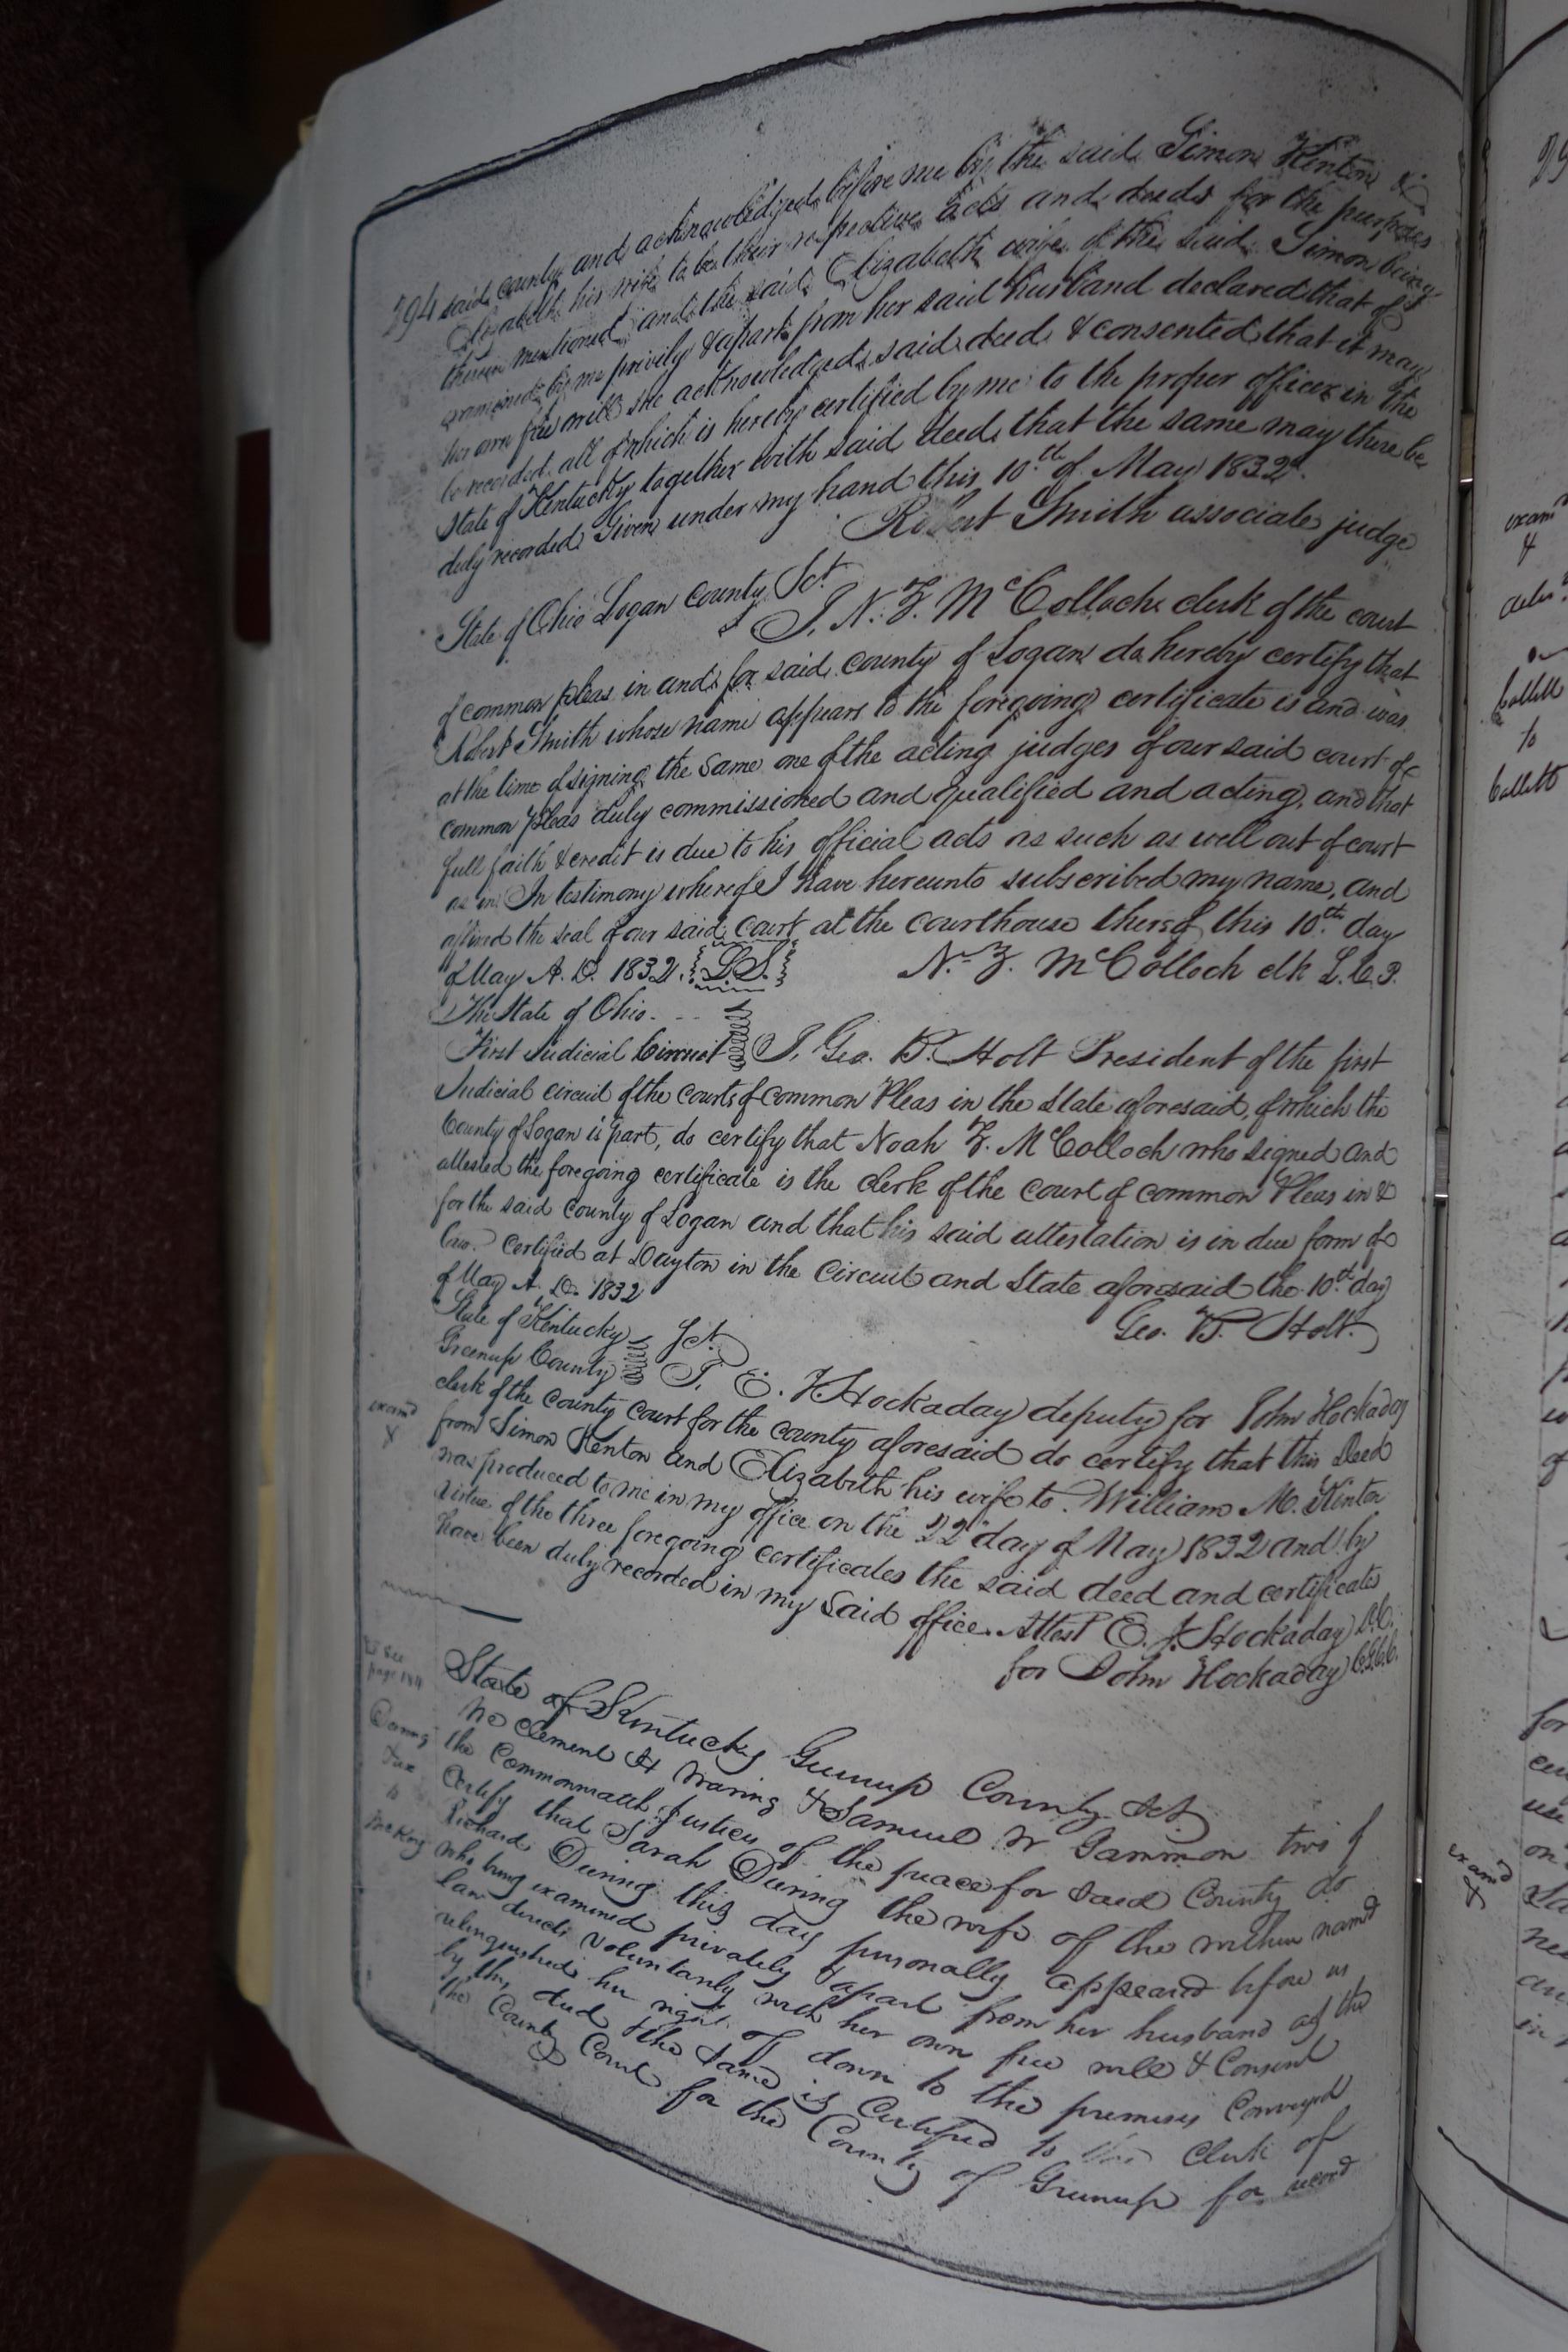 394 said county and acknowledged before me by the said Simon Kenton &
Elizabeth his wife to be their respective acts and deeds for the purposes
therein mentioned and the said Elizabeth wife of the said Simon being
examined by me privily & apart from her said husband declared that of
her own free will she acknowledged said deed & consented that it may
be recorded. all of which is hereby certified by me to the proper officer in the
State of Kentucky together with said deed, that the same may there be
duly recorded. Given under my hand this 10.th of May 1832.
Robert Smith associate judge
State of Ohio Logan County Sct.
I, N. Z. McColloch clerk of the court
of common pleas in and for said county of Logan do hereby certify that
Robert Smith whose name appears to the foregoing certificate is and was
at the time of signing the same one of the acting judges of our said court of
common Pleas duly commissioned and qualified and acting, and that
full faith & credit is due to his official acts as such as well out of court
as in. In testimony whereof I have hereunto subscribed my name, and
affixed the seal of our said court at the courthouse thereof this 10.th day
of May A. D. 1832. L.S. N. Z. McColloch clk L.C.P.
The State of Ohio.
First Judicial Circuit I, Geo. B. Holt President of the first
Judicial circuit of the courts of common Pleas in the State aforesaid, of which the
County of Logan is part, do certify that Noah Z. McColloch who signed and
attested the foregoing certificate is the clerk of the court of common Pleas in &
for the said county of Logan and that his said attestation is in due form of
law. Certified at Dayton in the circuit and State aforesaid the 10.th day
of May A. D. 1832
Geo. B. Holt.
State of Kentucky Sct.
Greenup County I, E. F. Hockaday deputy for John Hockaday
clerk of the county court for the county aforesaid do certify that this Deed
examd
&
from Simon Kenton and Elizabeth his wife to William M. Kenton
was produced to me in my office on the 22d day of May 1832 and by
virtue of the three foregoing certificates the said deed and certificates
have been duly recorded in my said office. Attest E. F. Hockaday D.C.
for John Hockaday C.G.C.C.
See
page 184
State of Kentucky Greenup County Sct
We Clement H Waring & Samuel W Gammon two of
the Commonwealth Justices of the peace for said County do
Certify that Sarah Deering the wife of the within named
Richard Deering this day personally appeared before us
to
McKoy
who being examined privately & apart from her husband as the
law directs voluntarily with her own free will & Consent
relinquished her right of dower to the premises Conveyed
by this deed & the same is Certified to the Clerk of
the County Court for the County of Greenup for record
examd
&
to
examd
&